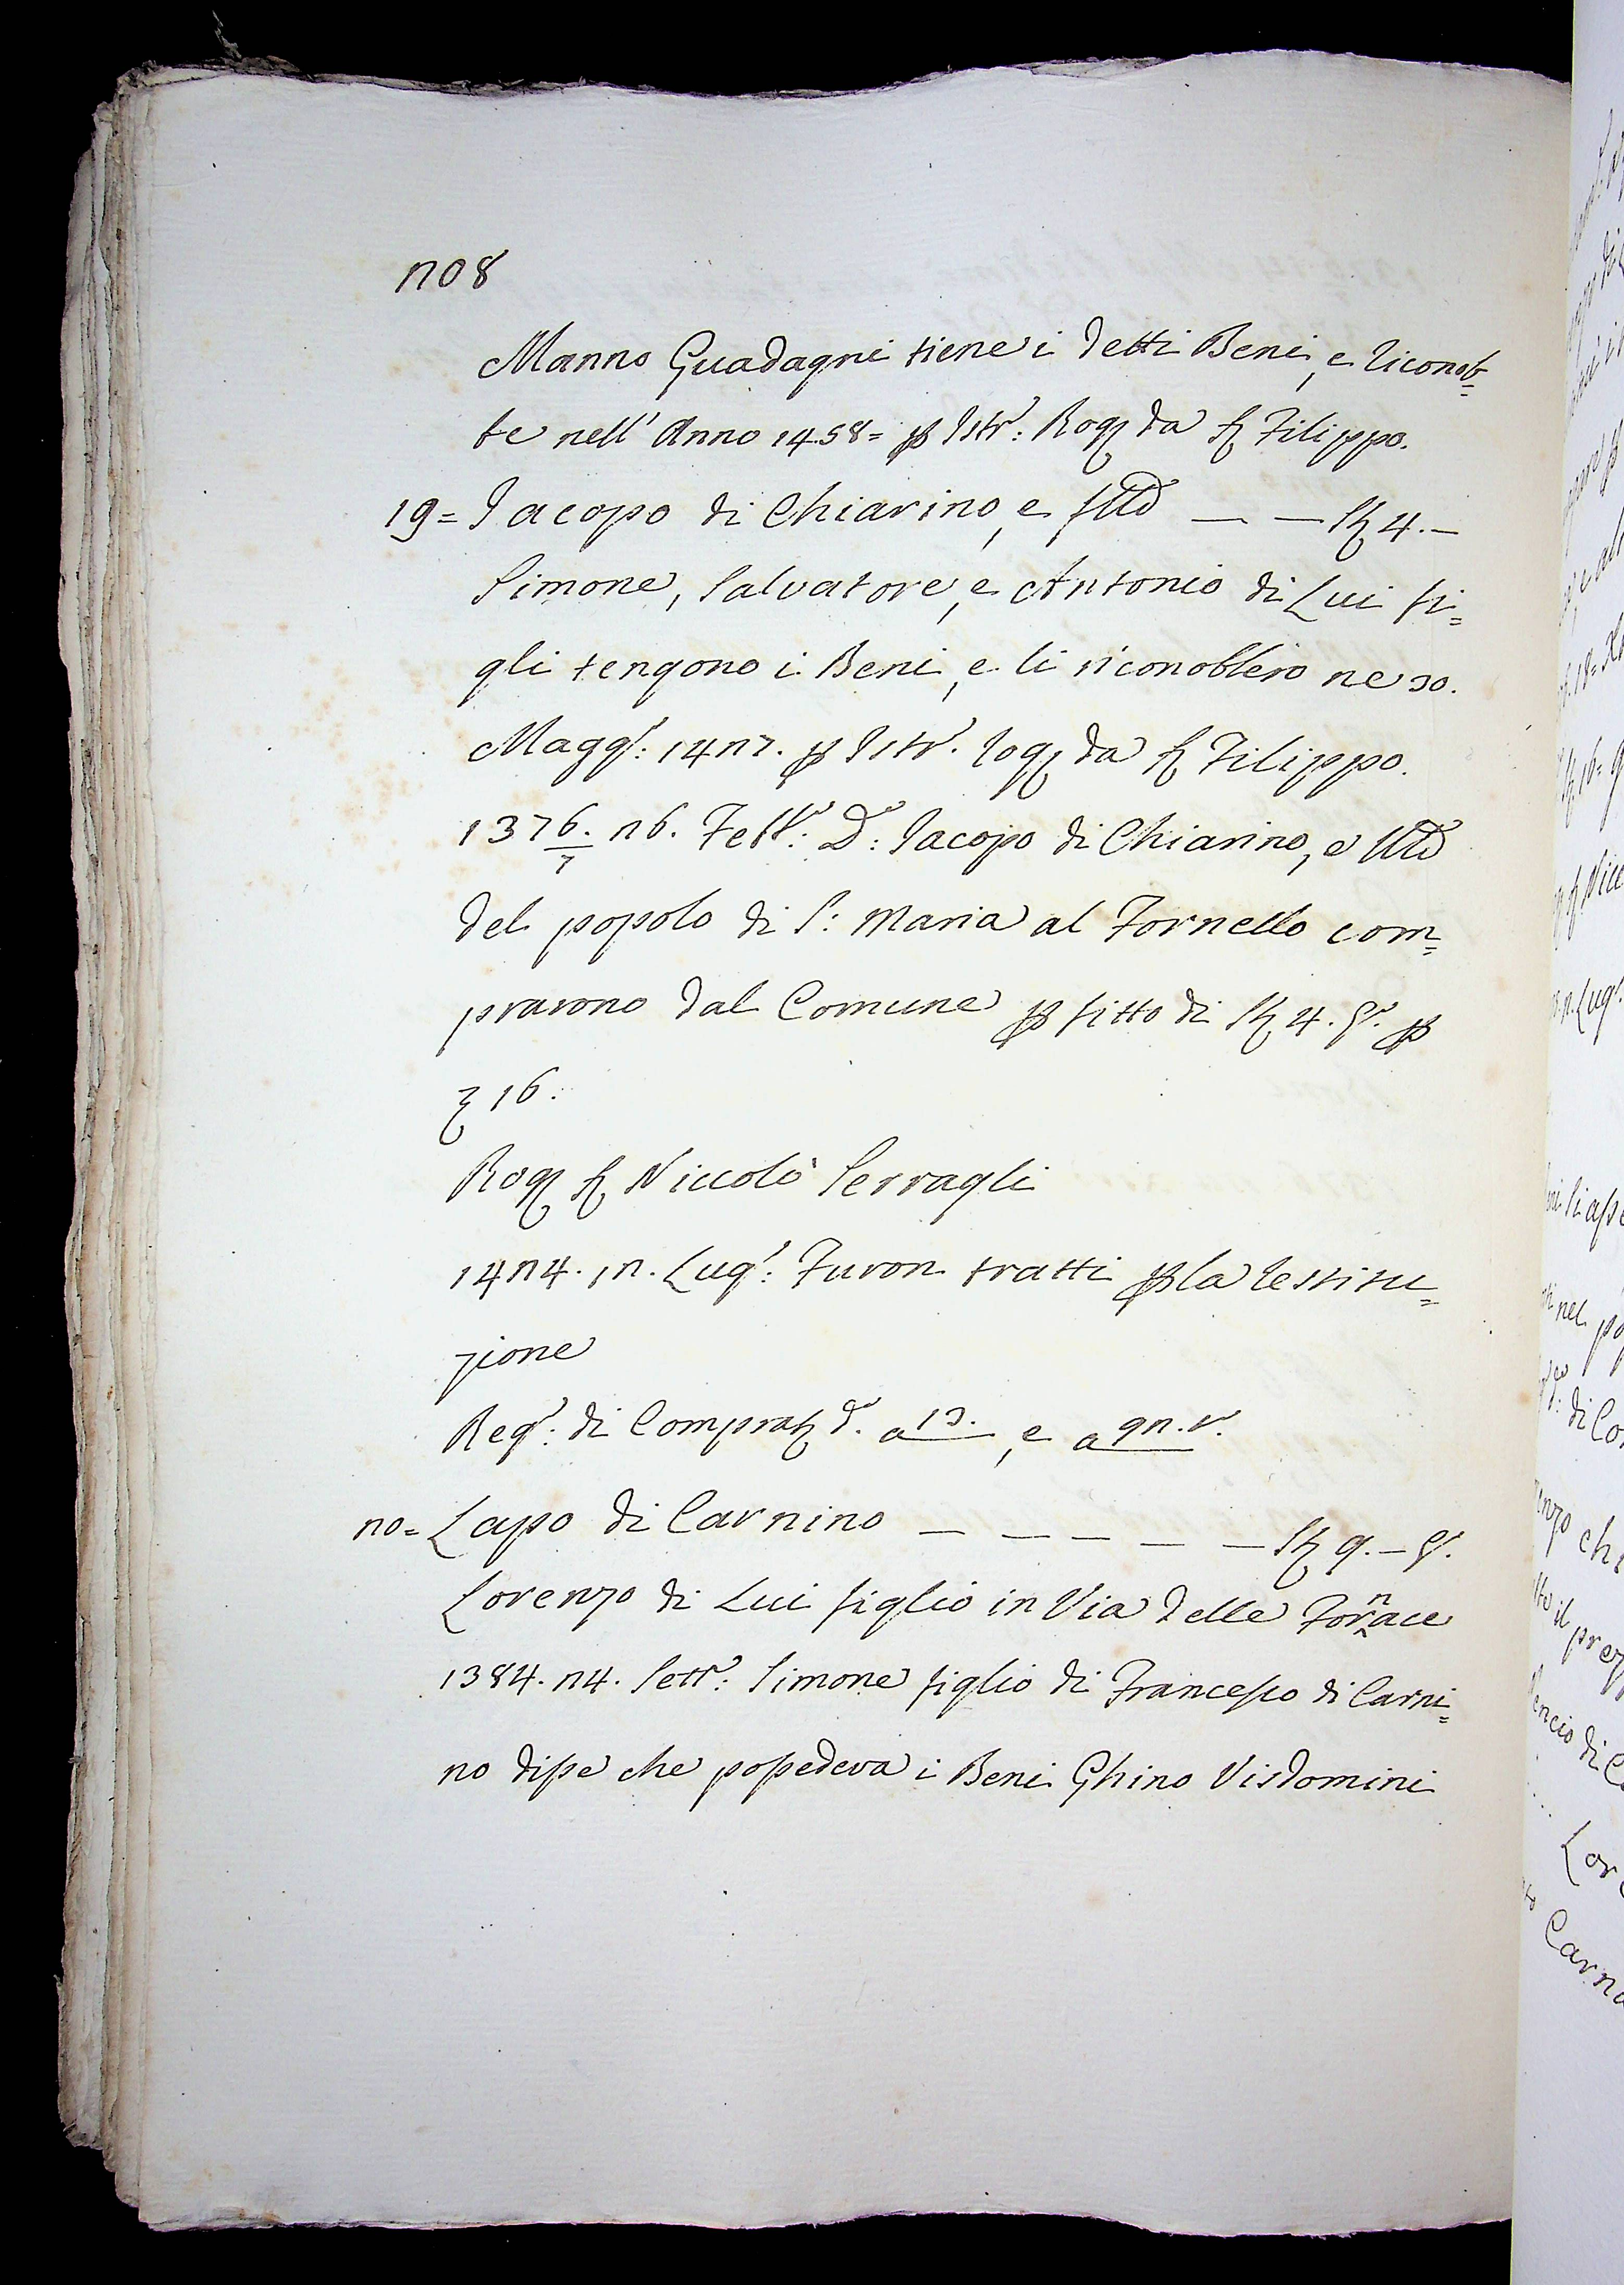 208
Manno Guadagni tiene i detti Beni, e riconob=
be nell' Anno 1458= p Istr: Rog da Filippo.
19= Jacopo di Chiarino, e — — 4.—
Simone, Salvatore, e Antonio di Lui fi=
gli tengono i Beni, e li riconobbero ne 30.
Magg: 1427. p Istr. rog da Filippo.
1376./7 26. Febb: D: Jacopo di Chiarino, e
del popolo di S: Maria al Fornello com=
prarono dal Comune p fitto di 4. p
16:
Rog Niccolò Serragli
1424. 12. Lug: Furon tratti p la restitu=
zione
Reg: di Comprat d. a 13., e a 92.
20= Lapo di Carnino — — — — — 9.—
Lorenzo di Lui figlio in Via delle Fornace
1384. 24. Sett: Simone figlio di Francesco di Carni=
no disse che possedeva i Beni Ghino Visdomini